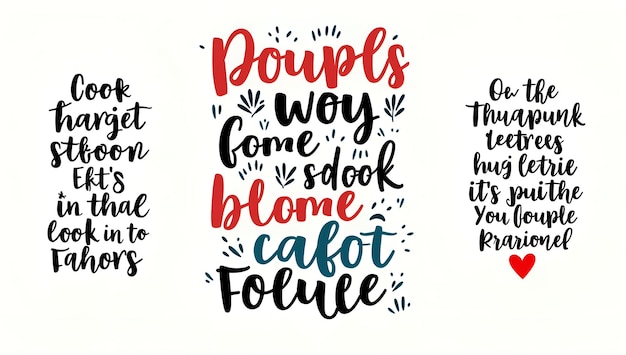 Cook
harget
stfoon
Ekt's
in thal
look in to
Fahors
Doupls
woy
fome sdook
blome
cafot
Foluee
Ow the
Thuapunk
leetrees
hug letrie
it's puithe
You Gouple
Rrarionel